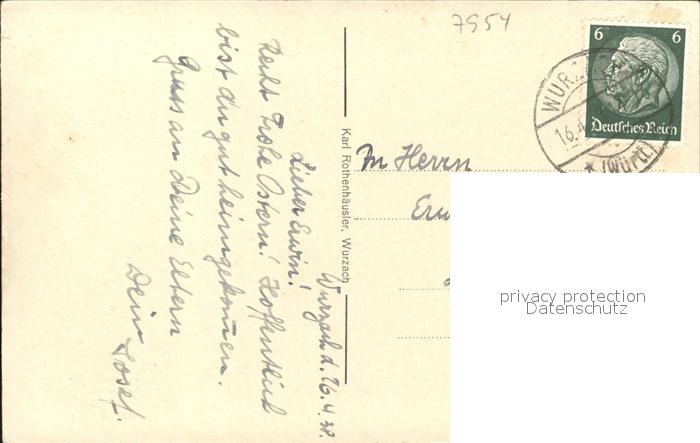 7954
6 6
Deutsches Reich
WURZ
16.
(Württ.)
Karl Rothenhäusler, Wurzach
An Herrn
Wurzach d. 16.4.38.
Lieber Erwin!
Recht Frohe Ostern! Hoffentlich
bist du gut heimgekommen.
Gruss an Deine Eltern
Dein Josef.
privacy protection
Datenschutz